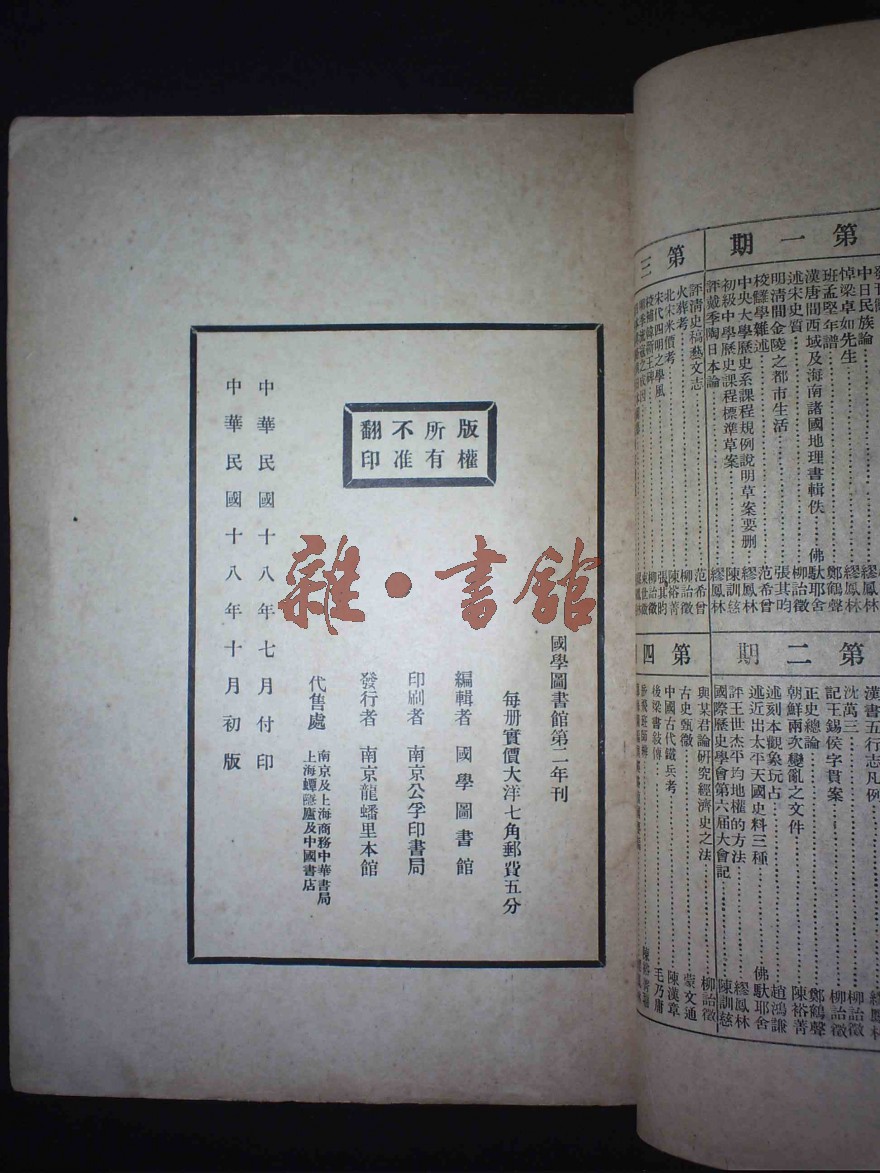 第一期
中日民族論
悼梁卓如先生 繆鳳林
班孟堅年譜 鄭鶴聲
漢唐間西域及海南諸國地理書輯佚 佛馱耶舍
述宋史質 柳詒徵
明清間金陵之都市生活 張其昀
校讎學雜述 范希曾
中央大學歷史系課程規例說明草案要删 繆鳳林
初級中學歷史課程標準草案 陳訓慈
評戴季陶日本論 繆鳳林
第三
評清史稿藝文志 范希曾
火葬考 柳詒徵
北宋米價考 陳裕菁
宋代四明之學風 張其昀
第二期
漢書五行志凡例
沈萬三 柳詒徵
記王錫侯字貫案
正史總論 鄭鶴聲
朝鮮兩次變亂之文件 陳裕菁
述刻本觀象玩占 趙鴻謙
述近出太平天國史料三種 佛馱耶舍
評王世杰平均地權的方法 繆鳳林
國際歷史學會第六届大會記 陳訓慈
第四
與某君論研究經濟史之法 柳詒徵
古史甄微 蒙文通
中國古代鐵兵考 陳漢章
後梁書敍傳 毛乃庸
版權
所有
不准
翻印
國學圖書館第二年刊
每册實價大洋七角郵費五分
編輯者 國學圖書館
印刷者 南京公孚印書局
發行者 南京龍蟠里本館
代售處 南京及上海商務中華書局
上海蟫隱廬及中國書店
中華民國十八年七月付印
中華民國十八年十月初版
雜·書館